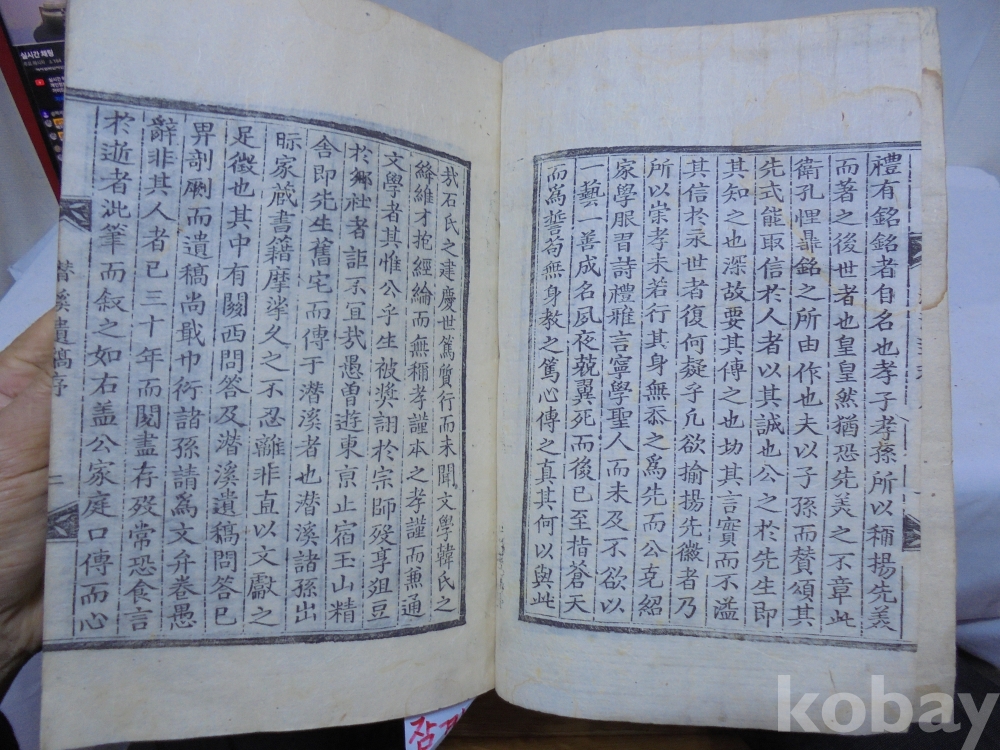 禮有銘銘者自名也孝子孝孫所以稱揚先美
而著之後世者也皇皇然猶恐先美之不章此
衛孔悝鼎銘之所由作也夫以子孫而贊頌其
先式能取信於人者以其誠也公之於先生即
其知之也深故要其傳之也切其言實而不濫
其信於永世者復何疑乎凡欲揄揚先徽者乃
所以崇孝未若行其身無忝之爲先而公克紹
家學服習詩禮雅言寧學聖人而未及不欲以
一藝一善成名夙夜兢翼死而後已至指蒼天
而爲誓苟無身教之篤心傳之真其何以與此
哉石氏之建慶世篤質行而未聞文學韓氏之
絳維才抱經綸而無稱孝謹本之孝謹而兼通
文學者其惟公乎生被奬詡於宗師歿享俎豆
於鄉社者詎不宜哉愚曽遊東亰止宿玉山精
舍即先生舊宅而傳于潜溪者也潜溪諸孫出
眎家蔵書籍摩挲久之不忍離非直以文獻之
足徵也其中有關西問答及潜溪遺稿問答已
畀剞劂而遺稿尚戢巾衍諸孫請爲文弁卷愚
辭非其人者已三十年而閱盡存歿常恐食言
於逝者泚筆而叙之如右盖公家庭口傳而心
潜溪遺稿序
二
실시간 채팅
kobay